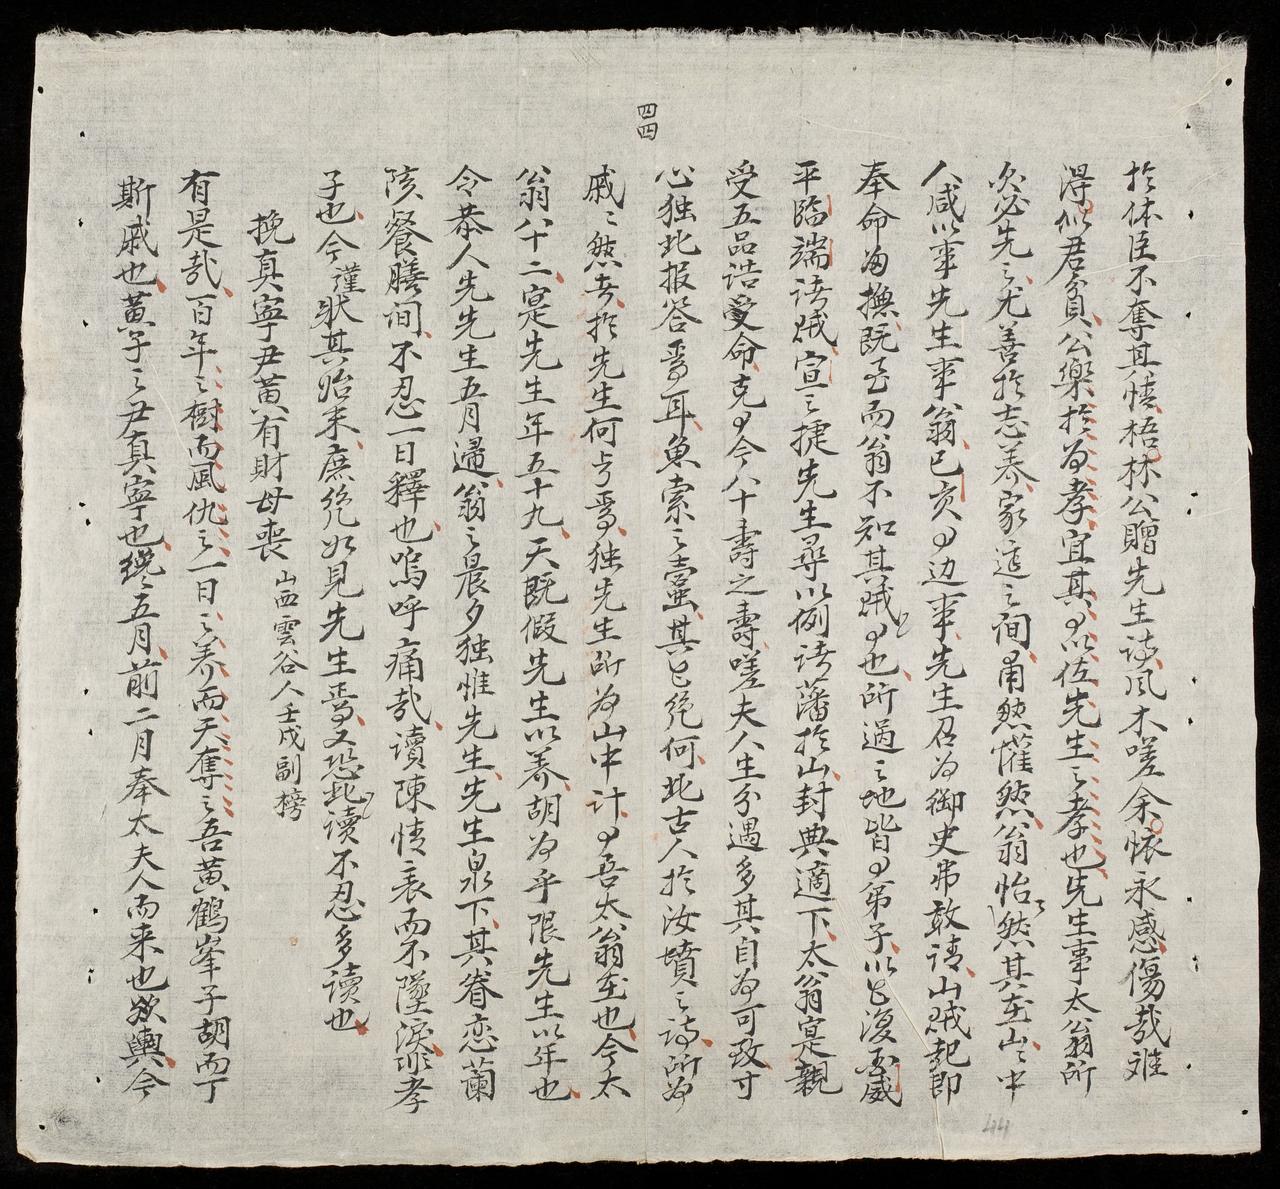 四四
扵体臣不奪其情梧林公贈先生詩風木嗟余懷永感傷哉难
淂似君貧公樂扵为孝宜其以佐先生之孝也先生事太翁所
次必先之尤善扵志养家這之间甫然懽然翁怡然其在山之中
人咸以事先生事翁己亥边事先生召为御史弗敢请山贼起即
奉命为撫既至而翁不知其贼也所過之地皆弟子以復玉威
平臨端诸贼宣之捷先生尋以例诸藩扵山封典適下太翁寔親
受五品诰受命克今八十壽之壽嗟夫人生分遇多其自为可致寸
心独此报答焉耳魚索之蠹其絶何此古人扵汝墳之詩所为
戚之然去扵先生何与焉独先生所为山中计吾太翁在也今太
翁八十二寔先生年五十九天既假先生以养胡为乎限先生以年也
令恭人先先生五月遄翁之晨夕独惟先生先生泉下其眷恋蘭
陔餐膳间不忍一日釋也嗚呼痛哉讀陳情表而不墜淚非孝
子也今謹狀其始末庶㡬如見先生焉又恐此讀不忍多讀也
挽真寧尹黄有財母喪 山西雲谷人壬戌副榜
有是哉百年之樹而風仇之一日之养而天奪之吾黄鶴峯子胡而丁
斯戚也黄子之尹真寧也纔五月前二月奉太夫人而来也欲輿今
44